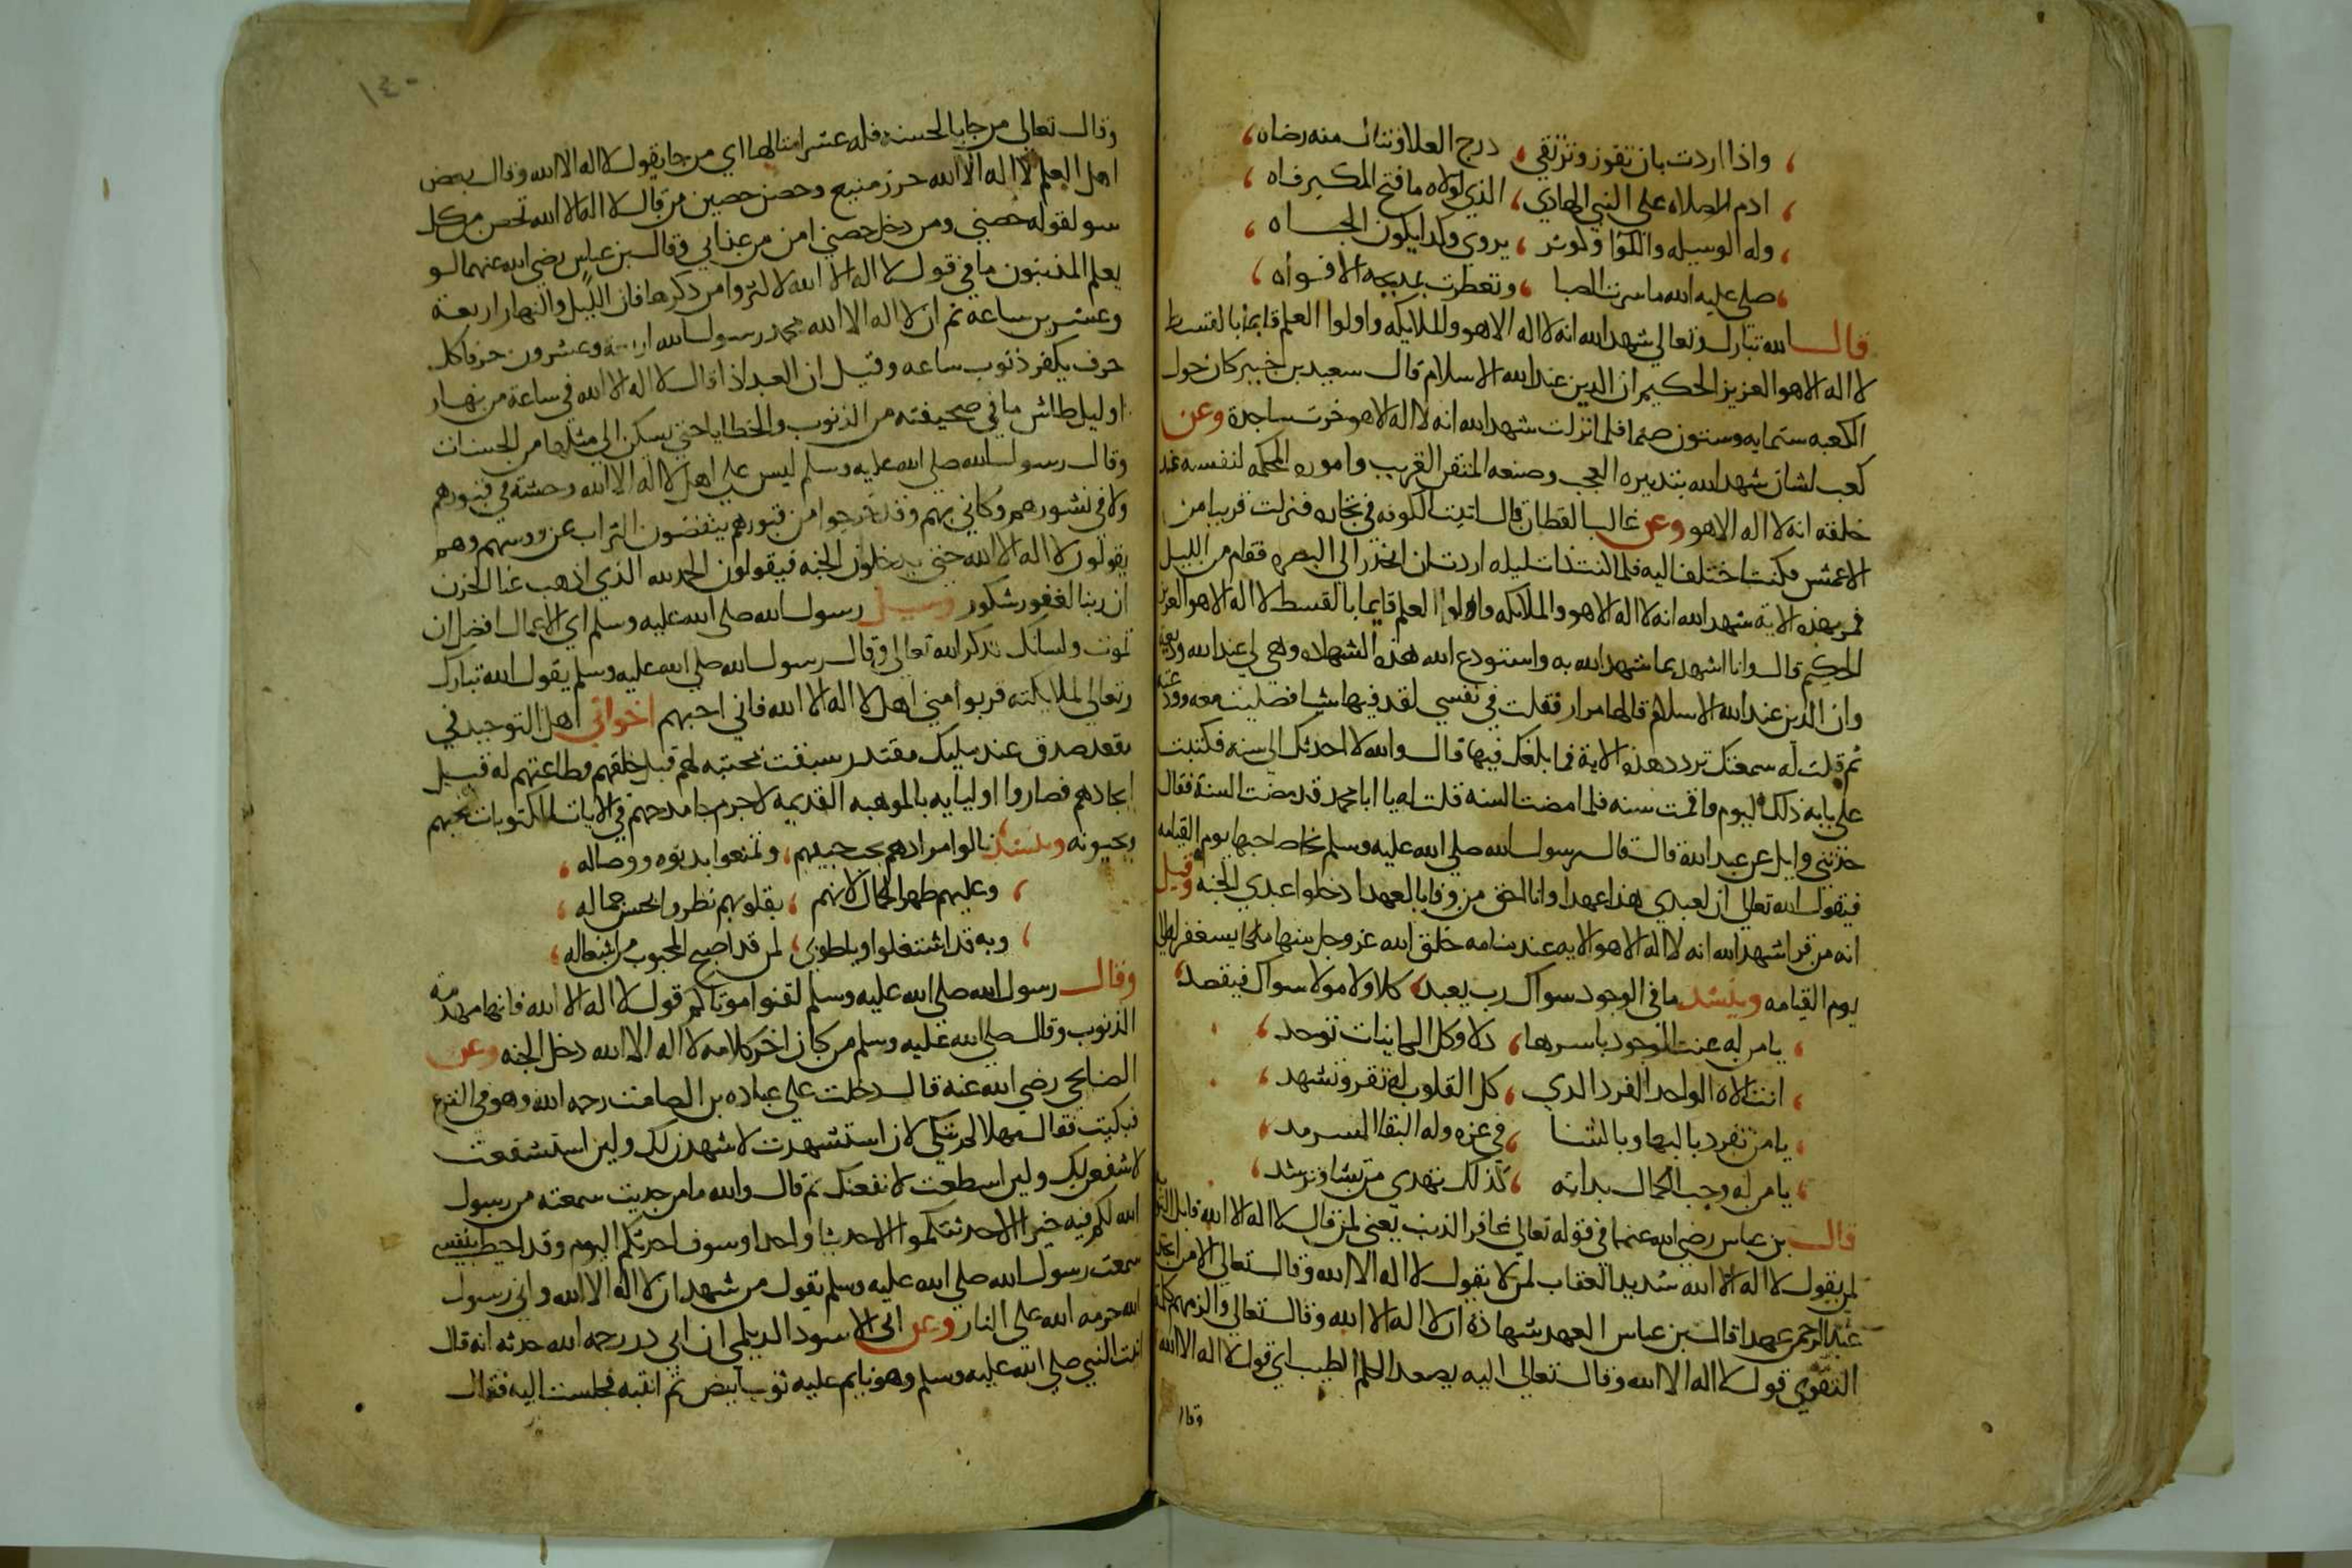 واذا اردت بان تفوز وترتقي درج العلا وتنال منه رضاه
ادم الصلاه على النبي الهادي الذي لولاه ما فتح المكبر فاه
وله الوسيله واللوا وكوثر يروي وكذا يكون الجاه
صلى عليه الله ما سرت الصبا وتعطرت بمديحه الافواه
قال الله تبارك وتعالى شهد الله انه لا اله الا هو والملايكه واولوا العلم قايما بالقسط
لا اله الا هو العزيز الحكيم ان الدين عند الله الاسلام قال سعيد بن جبير كان حول
الكعبه ستمايه وستون صنما فلما نزلت شهد الله انه لا اله الا هو خرت ساجدة وعن
كعب لشان شهد الله بتدبيره العجيب وصنعه المتقن الغريب واموره المحكمه لنفسه عند
خلقه انه لا اله الا هو وعن غالب القطان قال اتيت الكوفه في تجاره فنزلت قريبا من
الاعمش فكنت اختلف اليه فلما كنت ذات ليله اردت ان انحدر الى البصره فقام من الليل
فمر بهذه الاية شهد الله انه لا اله الا هو والملايكه واولوا العلم قايما بالقسط لا اله الا هو العزيز
الحكيم قال وانا اشهد بما شهد الله به واستودع الله هذه الشهاده وهي لي عند الله وديعه
وان الدين عند الله الاسلام قالها مرار فقلت في نفسي لقد فيها شيا فصليت معه وودعته
ثم قلت له سمعتك تردد هذه الاية فما بلغك فيها قال والله لا احدثك الى سنه فكتبت
على بابه ذلك اليوم واقمت سنه فلما مضت السنه قلت له يا ابا محمد قد مضت السنة فقال
حدثني وايل عن عبد الله قال قال رسول الله صلى الله عليه وسلم يجا بصاحبها يوم القيامه
فيقول الله تعالى ان لعبدي هذا عهدا وانا احق من وفا بالعهد ادخلوا عبدي الجنه وقيل
انه من قرا شهد الله انه لا اله الا هو الايه عند منامه خلق الله عز وجل منها ملكا يستغفر له الى
يوم القيامه وينشد ما في الوجود سواك رب يعبد كلا ولا مولا سواك فيقصد
يا من له عنت الوجود باسرها ذلا وكل الكاينات توحد
انت الاله الواحد الفرد الذي كل القلوب له تقر وتشهد
يا من تفرد بالبها وبالثنا في عزه وله البقا السرمد
يا من له وجب الكمال بداته كذلك تهدي من تشا وترشد
قال بن عباس رضي الله عنهما في قوله تعالى غافر الذنب يعني لمن قال لا اله الا الله قابل التوب
لمن يقول لا اله الا الله شديد العقاب لمن لا يقول لا اله الا الله وقال تعالى الا من اتخذ
عند الرحمن عهدا قال بن عباس العهد شهادة ان لا اله الا الله وقال تعالى والزمهم كلمة
التقوى قول لا اله الا الله وقال تعالى اليه يصعد الكلم الطيب اي قول لا اله الا الله
وقال
١٤٠
وقال تعالى من جا بالحسنه فله عشر امثالها اي من جا بقول لا اله الا الله وقال بعض
اهل العلم لا اله الا الله حرز منيع وحصن حصين من قال لا اله الا الله تحصن من كل
سو لقوله حصني ومن دخل حصني امن من عذابي وقال بن عباس رضي الله عنهما لو
يعلم المذنبون ما في قول لا اله الا الله لاكثروا من ذكرها فان الليل والنهار اربعة
وعشرين ساعة ثم ان لا اله الا الله محمد رسول الله اربعة وعشرون حرفا كل
حرف يكفر ذنوب ساعه وقيل ان العبد اذا قال لا اله الا الله في ساعة من نهار
او ليل طاش ما في صحيفته من الذنوب والخطايا حتى يسكن الى مثلها من الحسنات
وقال رسول الله صلى الله عليه وسلم ليس على اهل لا اله الا الله وحشة في قبورهم
ولا في نشورهم وكاني بهم وقد خرجوا من قبورهم ينفضون التراب عن روسهم وهم
يقولون لا اله الا الله حتى يدخلون الجنه فيقولون الحمد لله الذي اذهب عنا الحزن
ان ربنا لغفور شكور وسيل رسول الله صلى الله عليه وسلم اي الاعمال افضل ان
تموت ولسانك بذكر الله تعالى وقال رسول الله صلى الله عليه وسلم يقول الله تبارك
وتعالى لملايكته قربوا مني اهل لا اله الا الله فاني احبهم اخواني اهل التوحيد في
مقعد صدق عند مليك مقتدر سبقت محبته لهم قبل خلقهم وطاعتهم له قبل
ايجادهم فصاروا اوليايه بالموهبه القديمه لا جرم جا مدحهم في الايات المكتوبات يحبهم
ويحبونه وينشد نالوا مرادهم بحب حبيبهم وتمتعوا بدنوه ووصاله
وعليهم ظهر الجمال لانهم بقلوبهم نظروا بحسن جماله
وبه قد اشتغلوا وياطوبى لمن قد اصبح المحبوب من اشغاله
وقال رسول الله صلى الله عليه وسلم لقنوا موتاكم قول لا اله الا الله فانها مهدمة
الذنوب وقال صلى الله عليه وسلم من كان اخر كلامه لا اله الا الله دخل الجنه وعن
الصنابحي رضي الله عنه قال دخلت على عباده بن الصامت رحمه الله وهو في النزع
فبكيت فقال مهلا لم تبكي لان استشهدت لاشهدن لك ولين استشفعت
لاشفعن لك ولين اسطعت لانفعنك ثم قال والله ما من حديث سمعته من رسول
الله لكم فيه خير الا حدثتكموا الا حديثا واحدا وسوف احدثكم اليوم وقد احيط بنفسي
سمعت رسول الله صلى الله عليه وسلم يقول من شهد ان لا اله الا الله واني رسول
الله حرمه الله على النار وعن ابي الاسود الديلمي ان ابي در رحمه الله حدثه انه قال
اتيت النبي صلى الله عليه وسلم وهو نايم عليه ثوب ابيض ثم انتبه فجلست اليه فقال